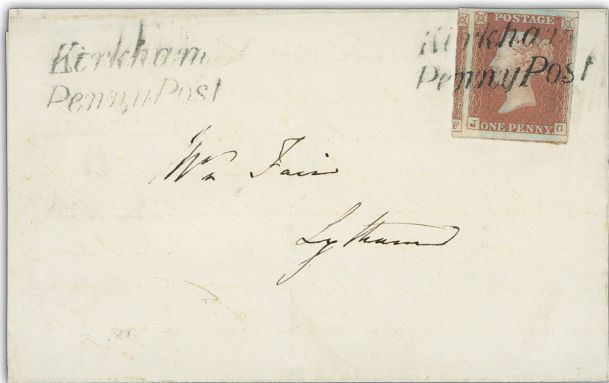 Kirkham
Penny Post
Kirkham
Penny Post
POSTAGE
ONE PENNY
F
J G
Wm Fair
Lytham